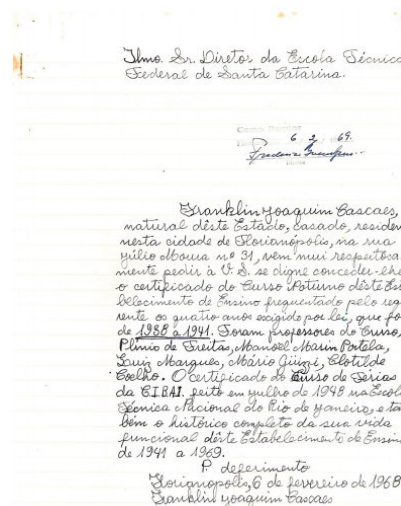 Ilmo. Sr. Diretor da Escola Técnica
Federal de Santa Catarina.
6 2 69.
Franklin Joaquim Cascaes,
natural dêste Estado, casado, residen
nesta cidade de Florianópolis, na rua
Júlio Moura nº 31, vem mui respeitosa
mente pedir à V. S. se digne conceder-lhe
o certificado do Curso Noturno dêste Est
belecimento de Ensino frequentado pelo req
rente os quatro anos exigido por lei, que fo
de 1938 a 1941. Foram professores do Curso,
Plínio de Freitas, Manoel Marin Portela,
Luiz Marques, Mário Clotilde
Coelho. O certificado do Curso de Férias
da CIBAI, feito em julho de 1948 na Escola
Técnica Nacional do Rio de Janeiro, e tam
bém o histórico completo da sua vida
funcional dêste Estabelecimento de Ensino
de 1941 a 1969.
P. deferimento
Florianópolis, 6 de fevereiro de 1968
Franklin Joaquim Cascaes